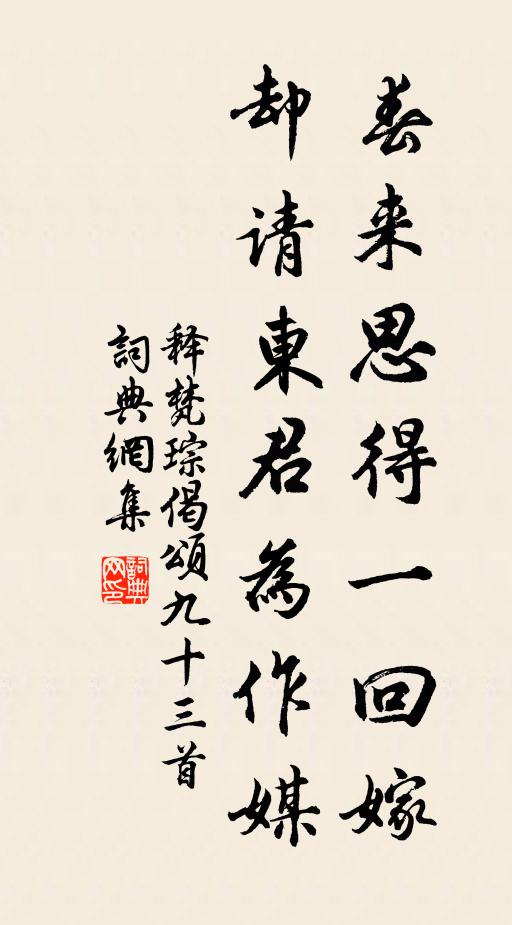 春来思得一回嫁
却请東君為作媒
释梵琮偈頌九十三首
詞典網集
詞典网印